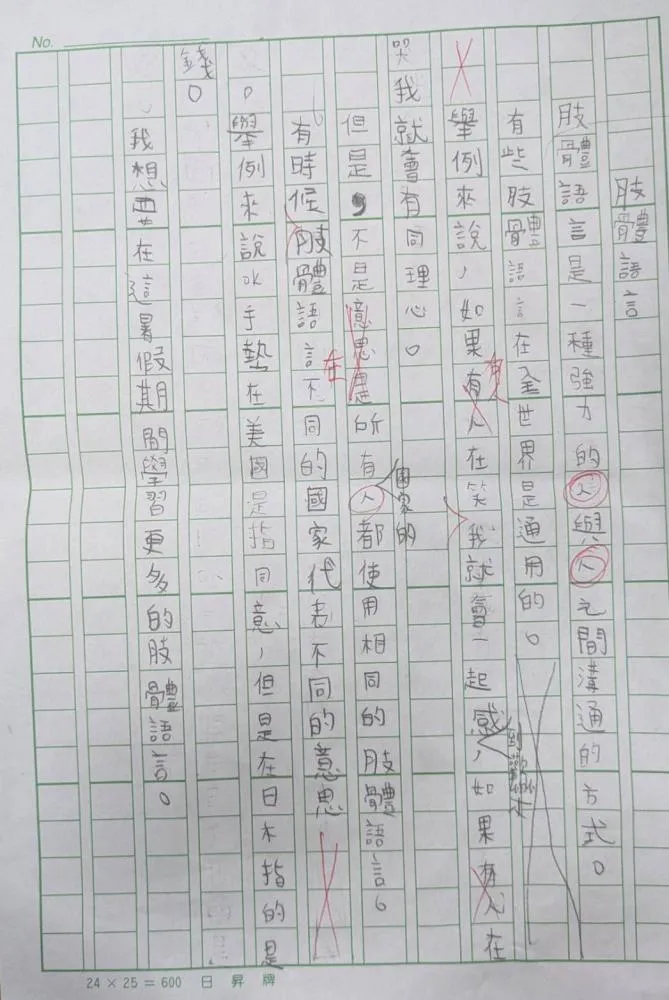 No.
肢體語言
肢體語言是一種強力的人與人之間溝通的方式。
有些肢體語言在全世界是通用的。
舉例來說,如果有人在笑我就會一起感到歡樂,如果有人在
哭我就會有同理心。
但是,不是意思是所有國家的人都使用相同的肢體語言。
有時候肢體語言在不同的國家代表不同的意思
。舉例來說OK手勢在美國是指同意,但是在日本指的是
錢。
我想要在這暑假期間學習更多的肢體語言。
24 × 25 = 600 日昇牌